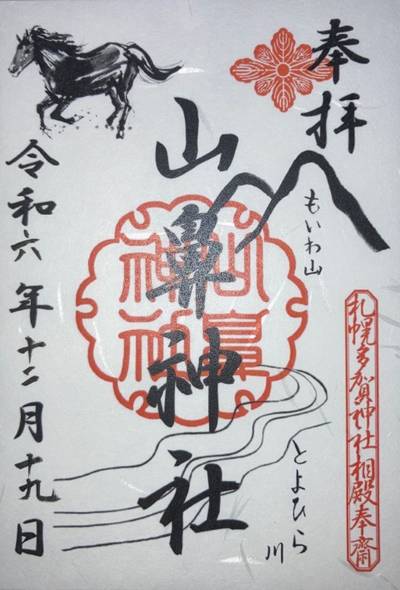 奉拝
もいわ山
札幌多賀神社相殿奉齋
山鼻神社
山鼻神社
とよひら川
令和六年十二月十九日